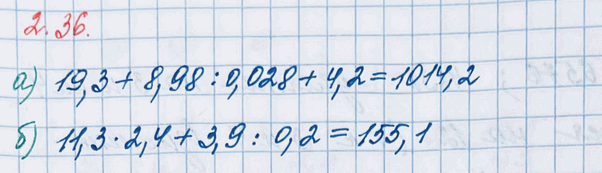 2.36.
а) 19,3 + 8,98 : 0,028 + 4,2 = 1014,2
б) 11,3 · 2,4 + 3,9 : 0,2 = 155,1